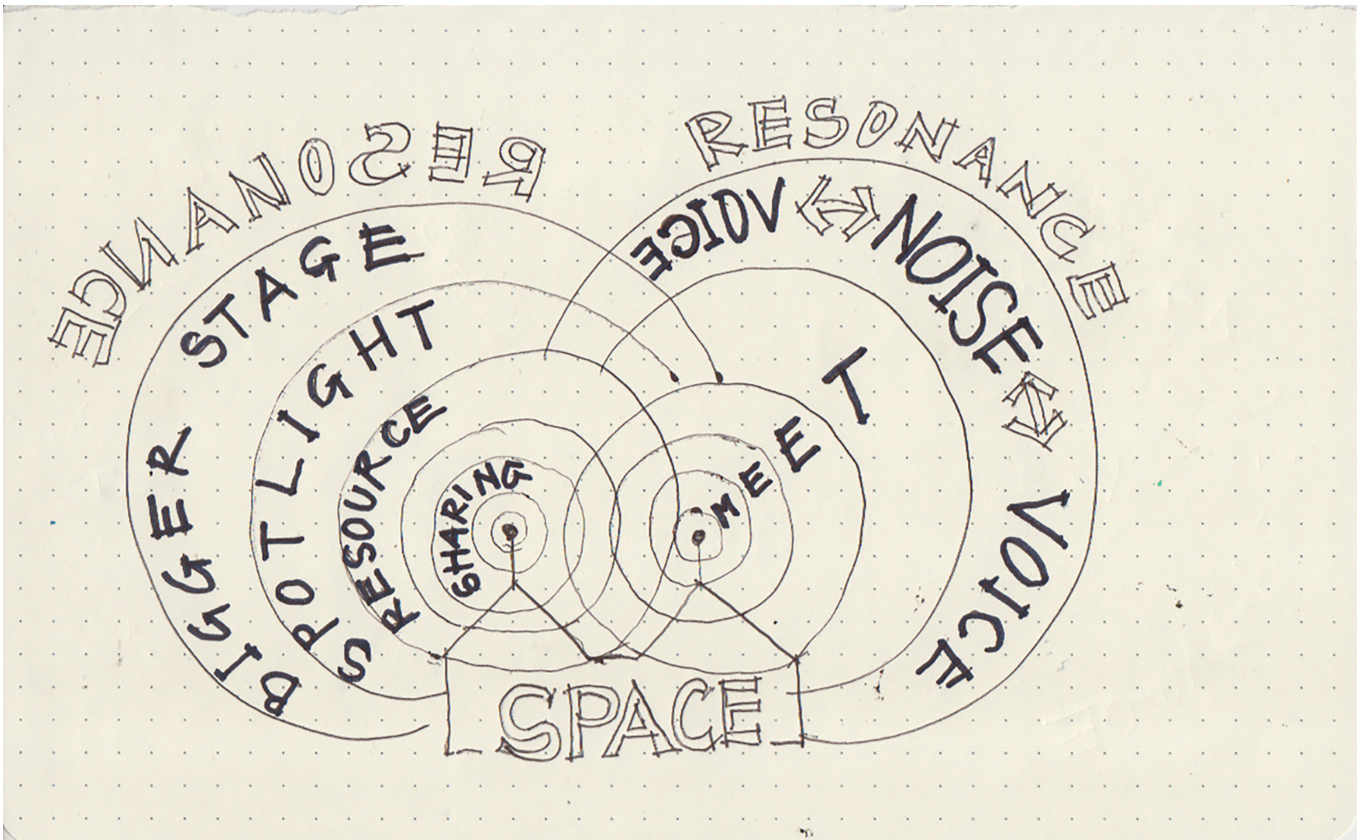 RESONANCE
RESONANCE
BIGGER STAGE
SPOTLIGHT
RESOURCE
SHARING
VOICE ↔ NOISE ↔ VOICE
MEET
SPACE